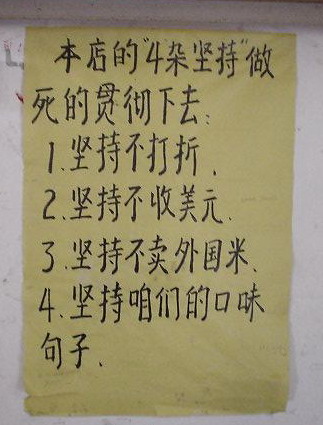 本店的"4杂坚持"做
死的贯彻下去:
1.坚持不打折.
2.坚持不收美元.
3.坚持不卖外国米.
4.坚持咱们的口味
句子.